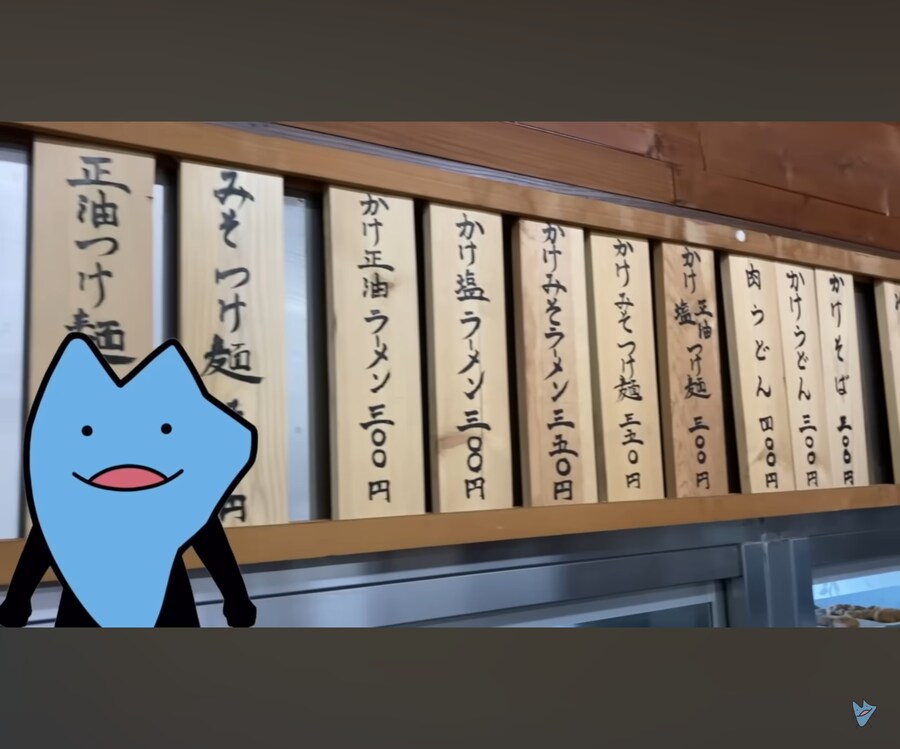 かけそば 三〇〇円
かけうどん 三〇〇円
肉うどん 四〇〇円
かけ 正油 塩 つけ麺 三〇〇円
かけみそつけ麺 三五〇円
かけみそラーメン 三五〇円
かけ塩ラーメン 三〇〇円
かけ正油ラーメン 三〇〇円
みそつけ麺 円
正油つけ麺